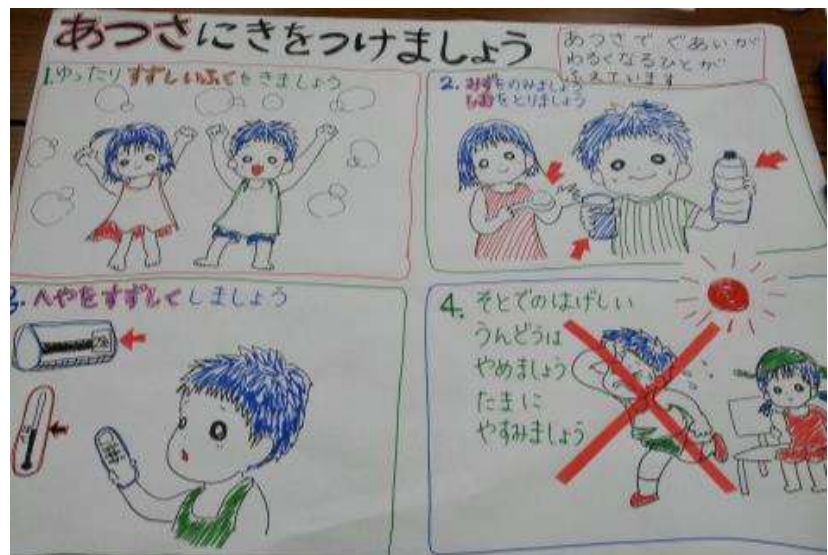 あつさにきをつけましょう
あつさで ぐあいが
わるくなるひとが
ふえています
1.ゆったりすずしいふくをきましょう
2. みずをのみましょう
しおをとりましょう
3. へやをすずしくしましょう
4. そとでのはげしい
うんどうは
やめましょう
たまに
やすみましょう